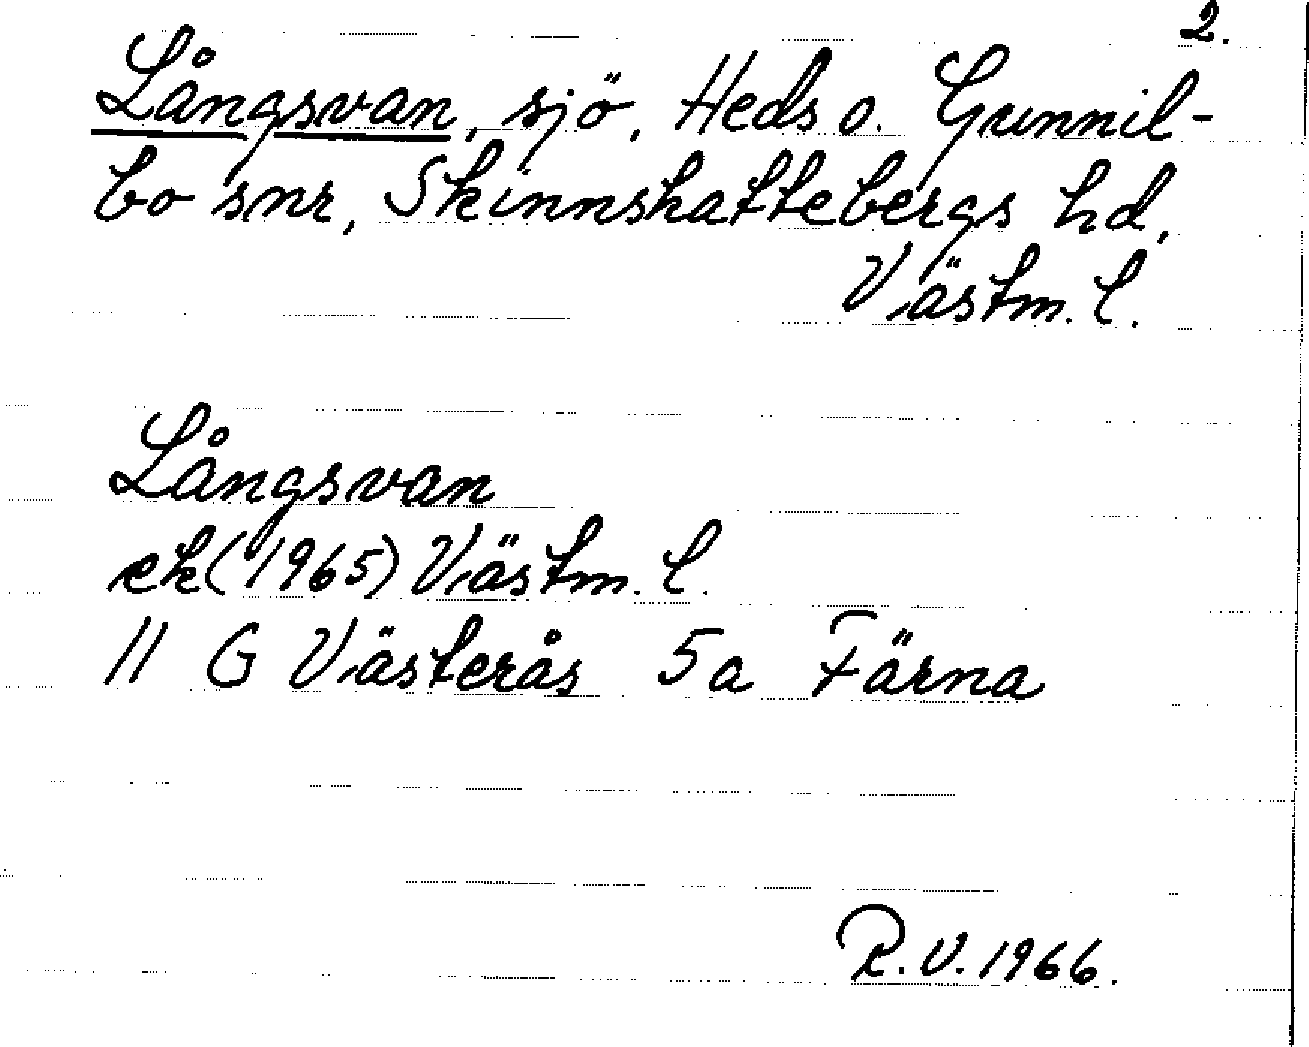 2.
Långsvan, sjö, Heds o. Gunnil-
bo snr, Skinnskattebergs hd,
Västm. l.
Långsvan
ek (1965) Västm. l.
11 G Västerås 5a Färna
R.V. 1966.